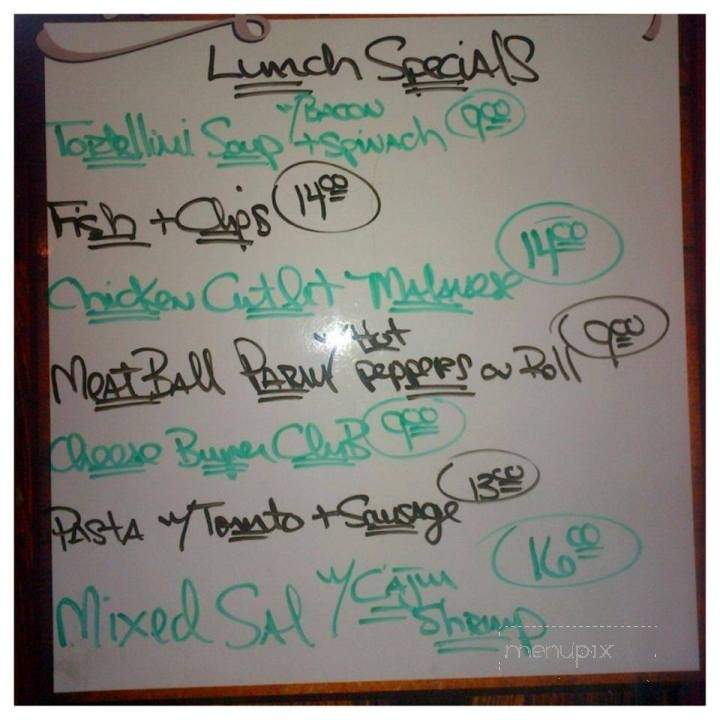 Lunch Specials
Tortellini Soup w/ Bacon + Spinach 9.00
Fish + Chips 14.00
Chicken Cutlet Milanese 14.00
Meat Ball Parm w/ Hot peppers on Roll 9.00
Cheese Burger Club 9.00
Pasta w/ Tomato + Sausage 13.00
Mixed Sal w/ Cajun Shrimp 16.00
menupix